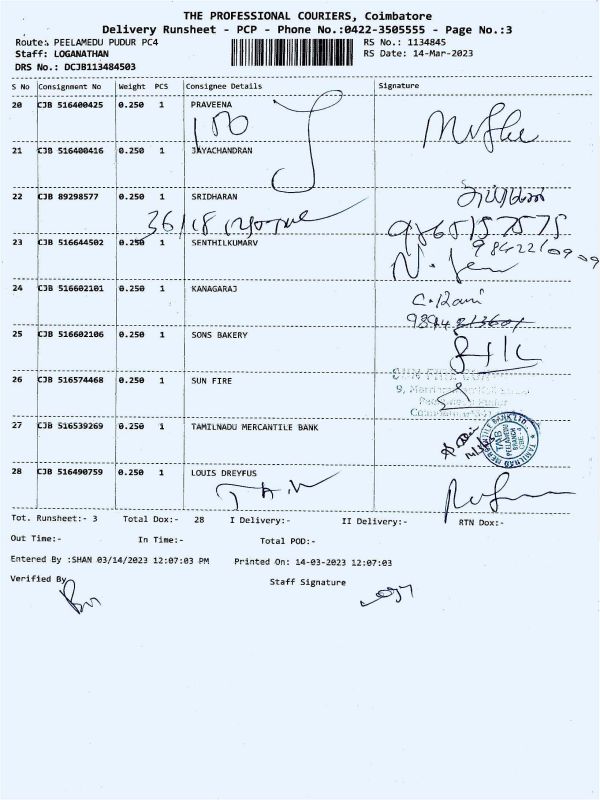 THE PROFESSIONAL COURIERS, Coimbatore
Delivery Runsheet - PCP - Phone No.:0422-3505555 - Page No.:3
Route: PEELAMEDU PUDUR PC4 RS No.: 1134845
Staff: LOGANATHAN RS Date: 14-Mar-2023
DRS No.: DCJB113484503
S No Consignment No Weight PCS Consignee Details Signature
20 CJB 516400425 0.250 1 PRAVEENA
21 CJB 516400416 0.250 1 JAYACHANDRAN
22 CJB 89298577 0.250 1 SRIDHARAN
36/18
23 CJB 516644502 0.250 1 SENTHILKUMARV
24 CJB 516602101 0.250 1 KANAGARAJ
C. Rani
25 CJB 516602106 0.250 1 SONS BAKERY
26 CJB 516574468 0.250 1 SUN FIRE
27 CJB 516539269 0.250 1 TAMILNADU MERCANTILE BANK
TAMILNAD MERCANTILE BANK LTD
PEELAMEDU
BRANCH
28 CJB 516490759 0.250 1 LOUIS DREYFUS
Tot. Runsheet:- 3 Total Dox:- 28 I Delivery:- II Delivery:- RTN Dox:-
Out Time:- In Time:- Total POD:-
Entered By :SHAN 03/14/2023 12:07:03 PM Printed On: 14-03-2023 12:07:03
Verified By Staff Signature